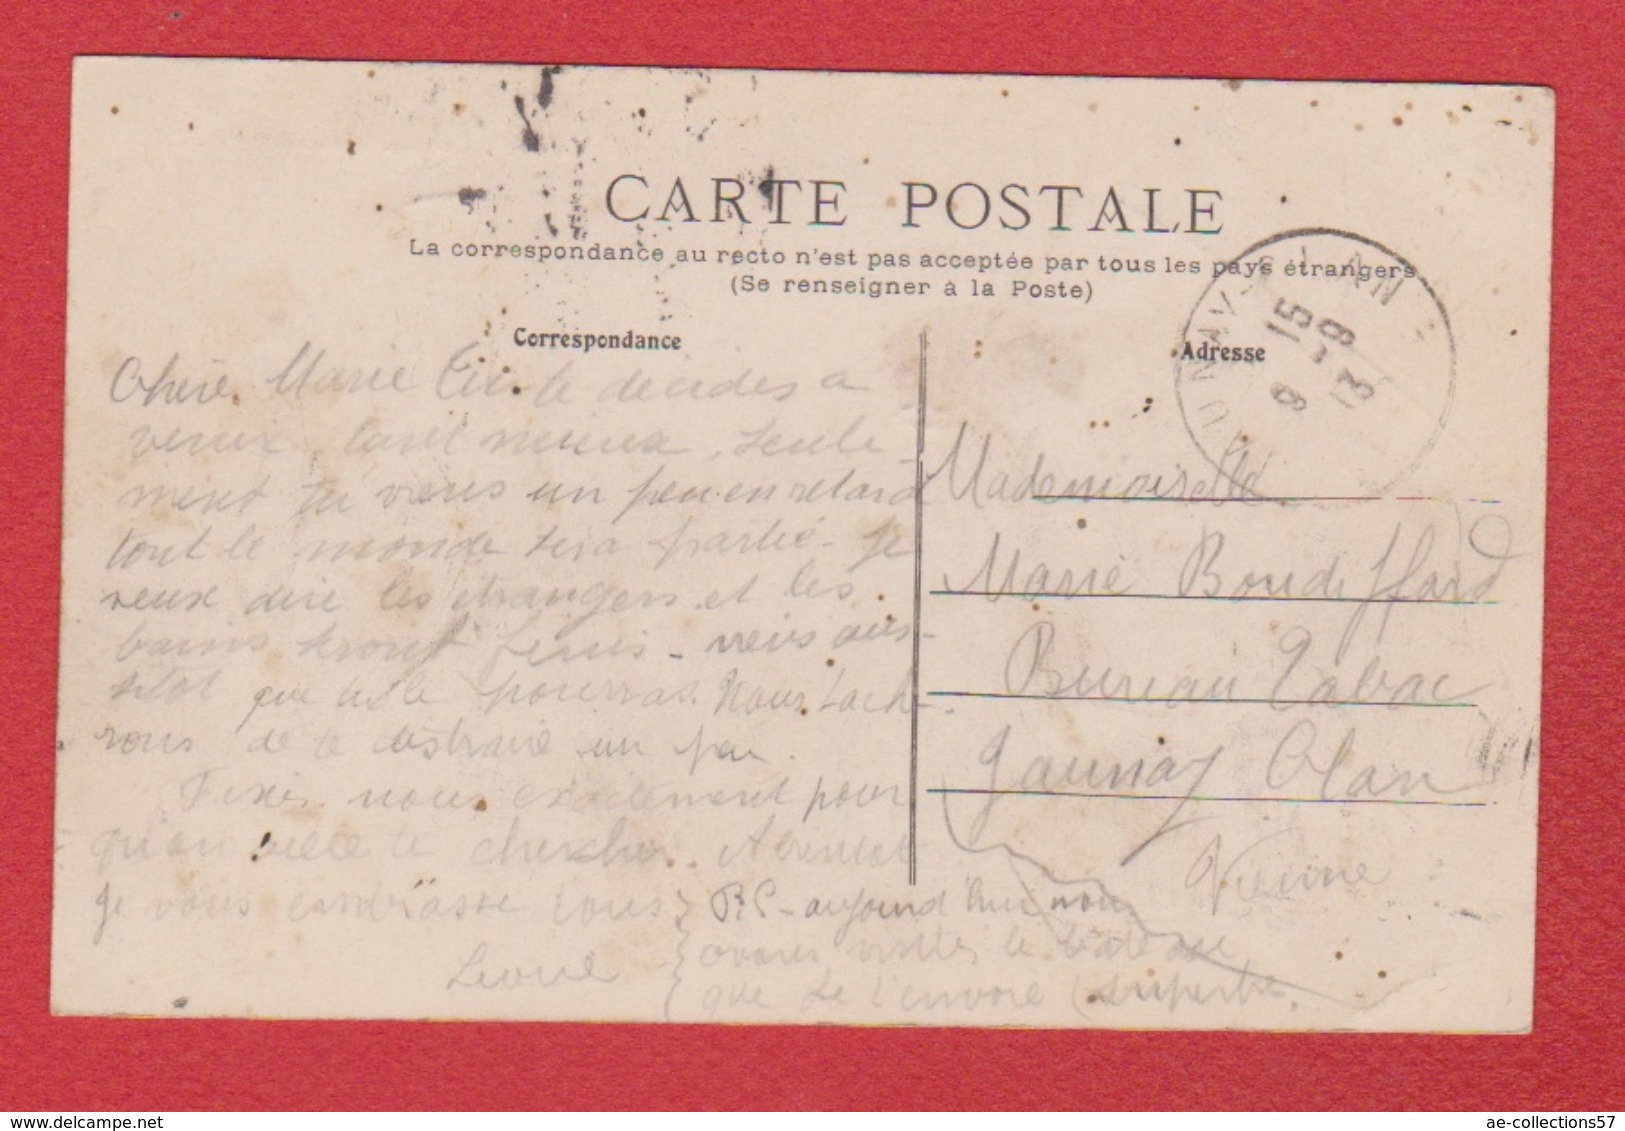 CARTE POSTALE
La correspondance au recto n'est pas acceptée par tous les pays étrangers
(Se renseigner à la Poste)
Correspondance
Chère Marie te decides a
venir, tant mieux, seule-
ment tu viens un peu en retard
tout le monde sera partie - je
veux dire les etrangers et les
bains seront finis - viens aus-
sitot que tu le pourras. Nous tache-
rons de te distraire un peu.
Fixes nous exactement pour
qu'on aille te chercher. A bientot
je vous embrasse tous
Leonie
P.S - aujourd'hui nous
avons visités le bateau
que je t'envoie (superbe.
Adresse
Mademoiselle
Marie Boudiffard
Bureau Tabac
Jaunay Clan
Vienne
JAUNAY-CLAN
9 15
13 -9
ae-collections57